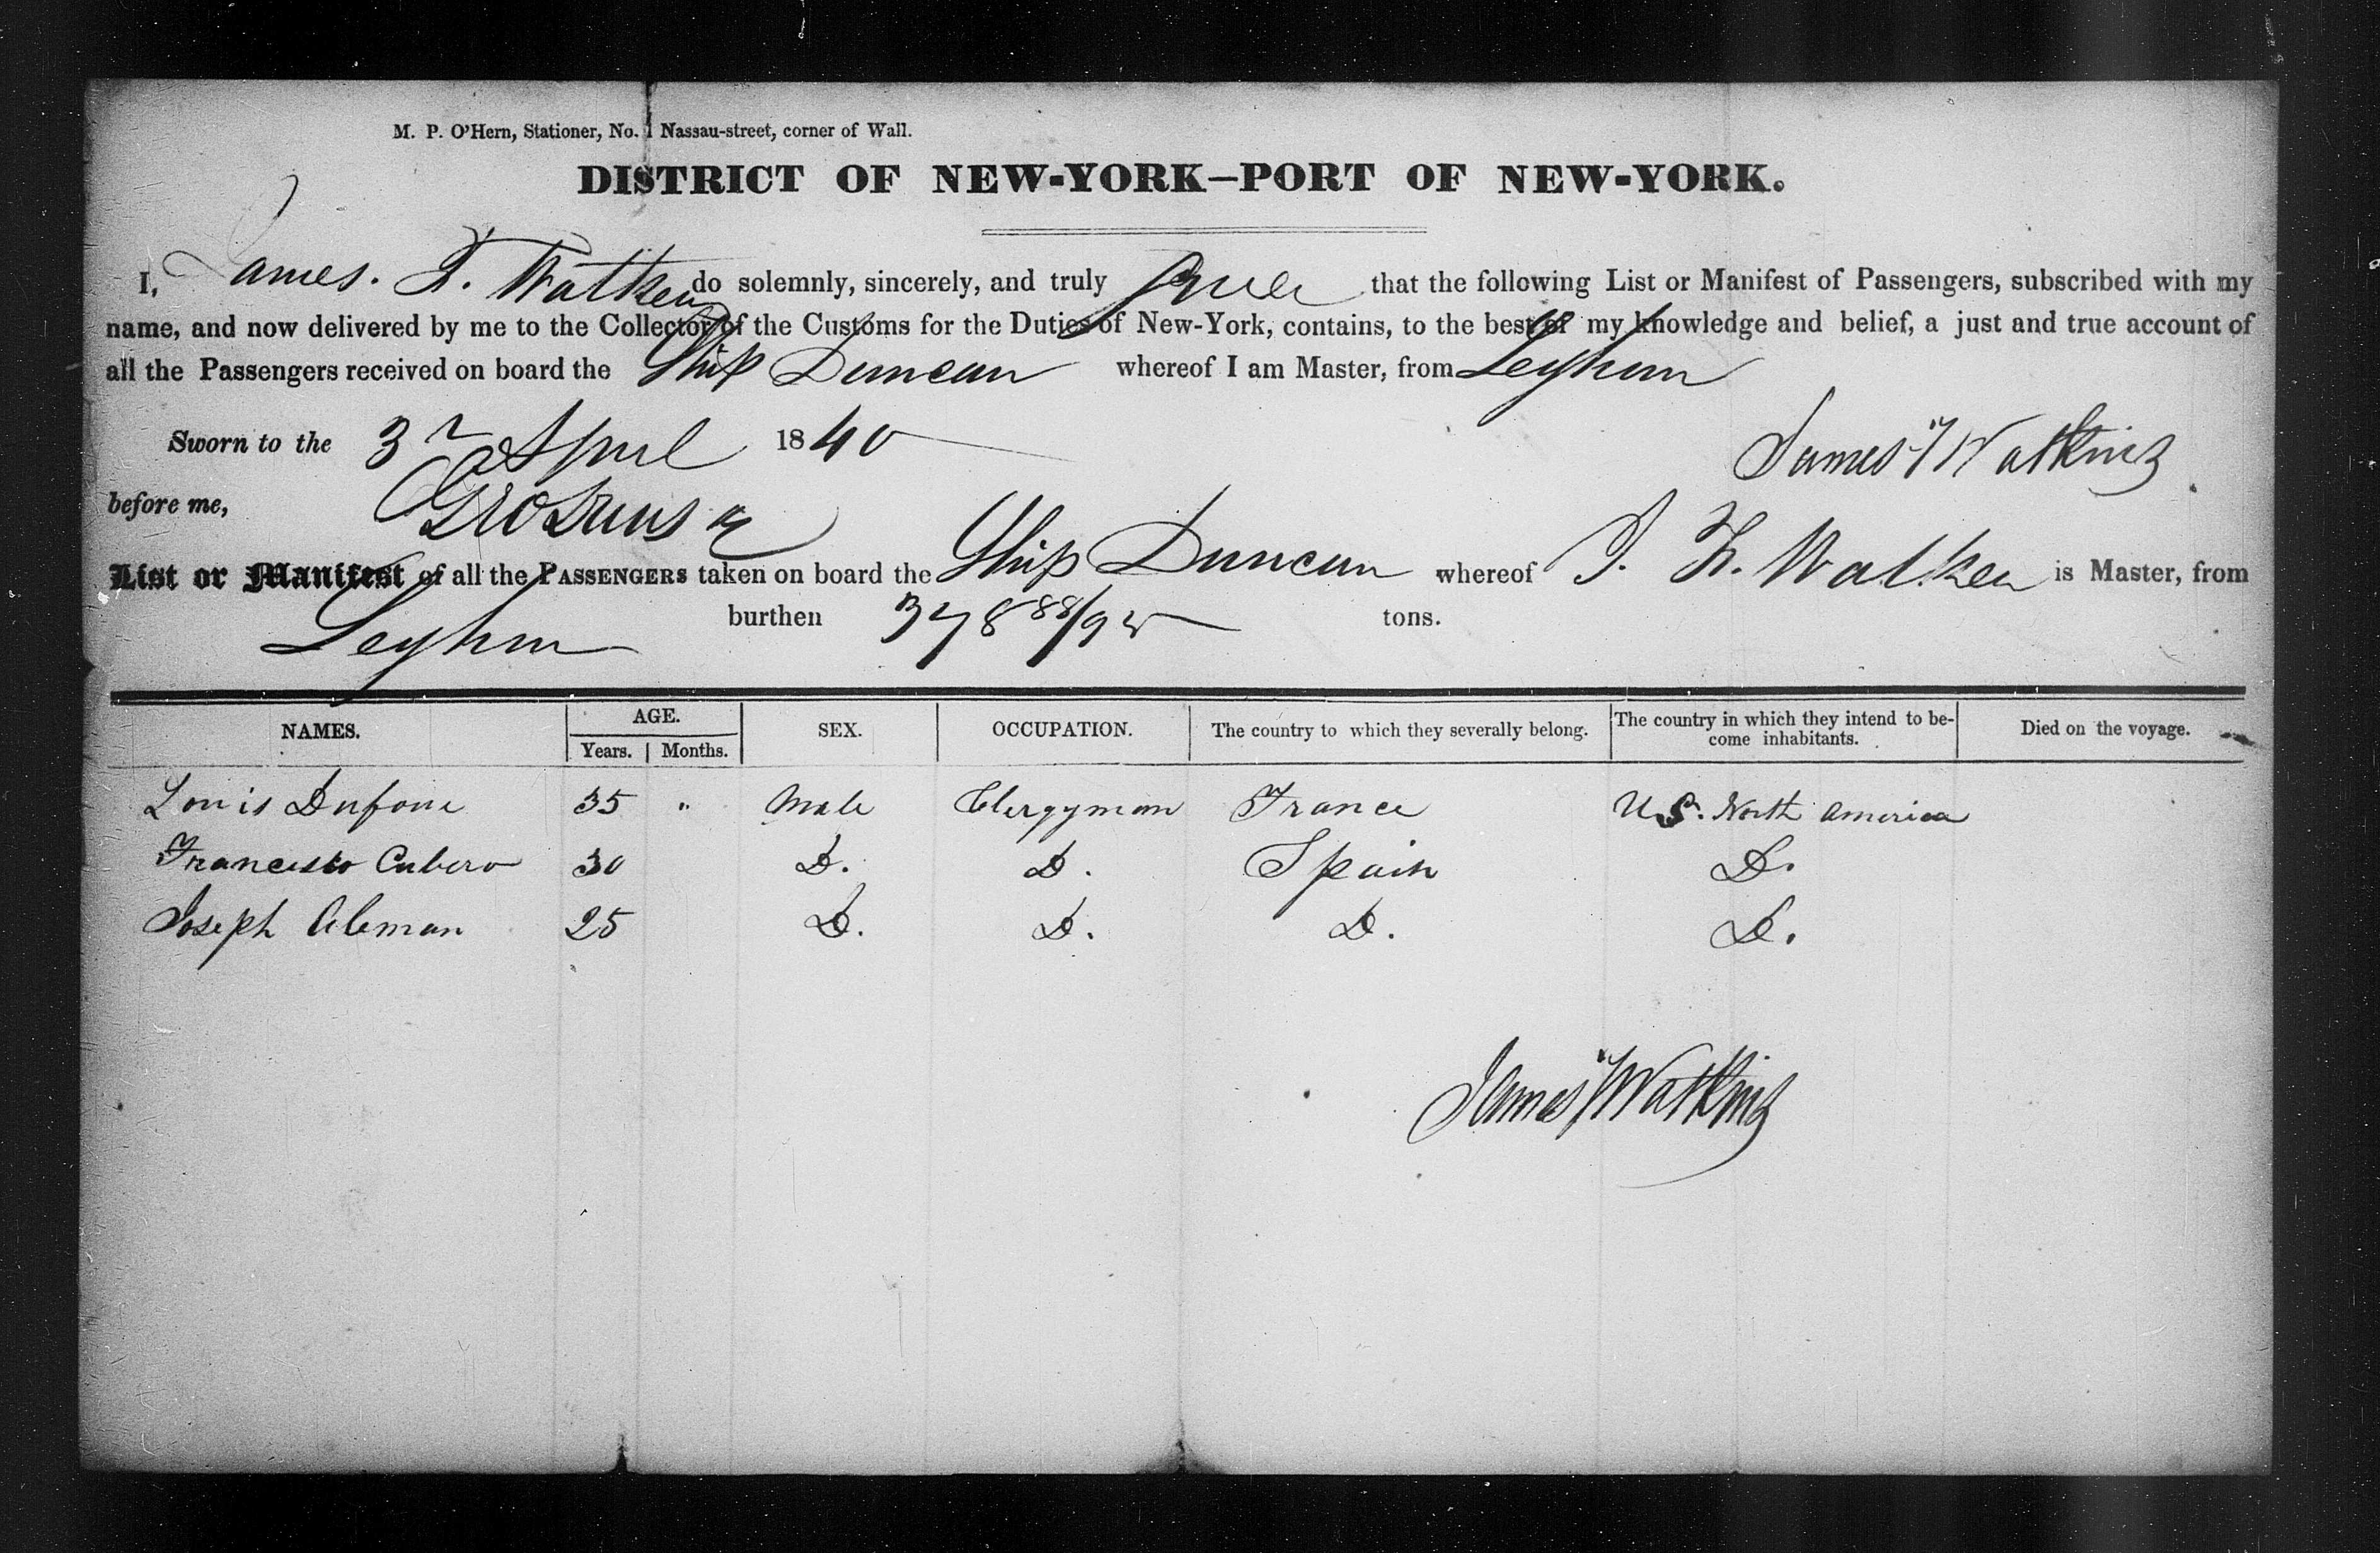 M. P. O'Hern, Stationer, No. 1 Nassau-street, corner of Wall.
DISTRICT OF NEW-YORK—PORT OF NEW-YORK.
I, James. T. Watken do solemnly, sincerely, and truly swear that the following List or Manifest of Passengers, subscribed with my
name, and now delivered by me to the Collector of the Customs for the Duties of New-York, contains, to the best of my knowledge and belief, a just and true account of
all the Passengers received on board the Ship Duncan whereof I am Master, from Leghorn
Sworn to the 3 April 1840 James T Watkins
before me,
List or Manifest of all the PASSENGERS taken on board the Ship Duncan whereof J. T. Watken is Master, from
Leghorn burthen 378 88/95 tons.
NAMES. AGE. SEX. OCCUPATION. The country to which they severally belong. The country in which they intend to be- Died on the voyage.
Years. Months. come inhabitants.
Louis Dufour 35 " Male Clergyman France U.S. North America
Francesco Cubero 30 D. D. Spain D.
Joseph Aleman 25 D. D. D. D.
James T Watkins